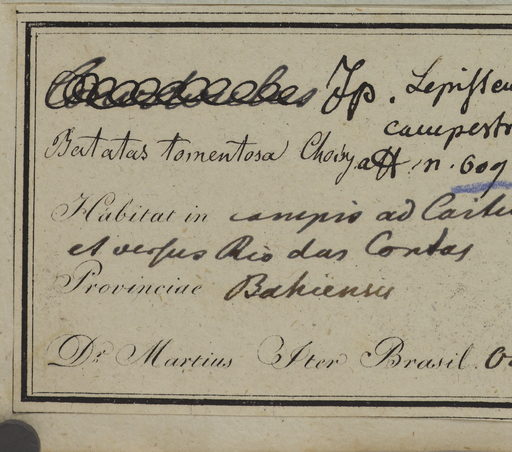 Ip. Lepisseu
campestr
Batatas tomentosa Choisy aff. n. 609
Habitat in campis ad Caite
et versus Rio das Contas
Provinciae Bahiensis
Dr. Martius Iter Brasil.